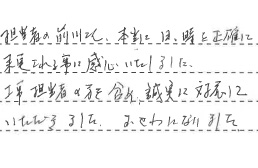 担当者の前川さん、本当に日、時を正確に
来更される事に感心いたしました。
工事担当者の方を含め、誠実に対応して
いただきました。おせわになりました